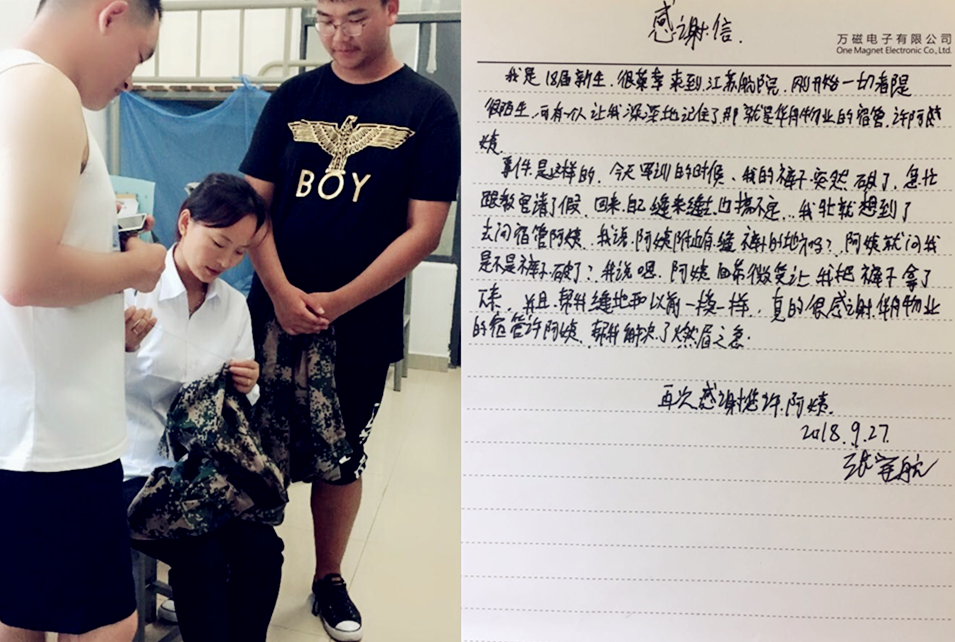 BOY
感谢信.
万磁电子有限公司
One Magnet Electronic Co.,Ltd.
我是18届新生. 很荣幸来到江苏航院, 刚开始一切都是
很陌生, 可有一人让我深深地记住了那就是华月物业的宿管, 许阿
姨.
事件是这样的, 今天军训的时候、我的裤子突然破了, 急忙
跟教官请了假, 回来自己缝来缝去也搞不定, 我就想到了
去问宿管阿姨, 我说, 阿姨附近有缝裤子的地方吗? 阿姨就问我
是不是裤子破了? 我说嗯, 阿姨面带微笑让我把裤子拿了
来, 并且帮我缝地和以前一模一样, 真的很感谢华月物业
的宿管许阿姨, 帮我解决了燃眉之急.
再次感谢您许阿姨.
2018.9.27.